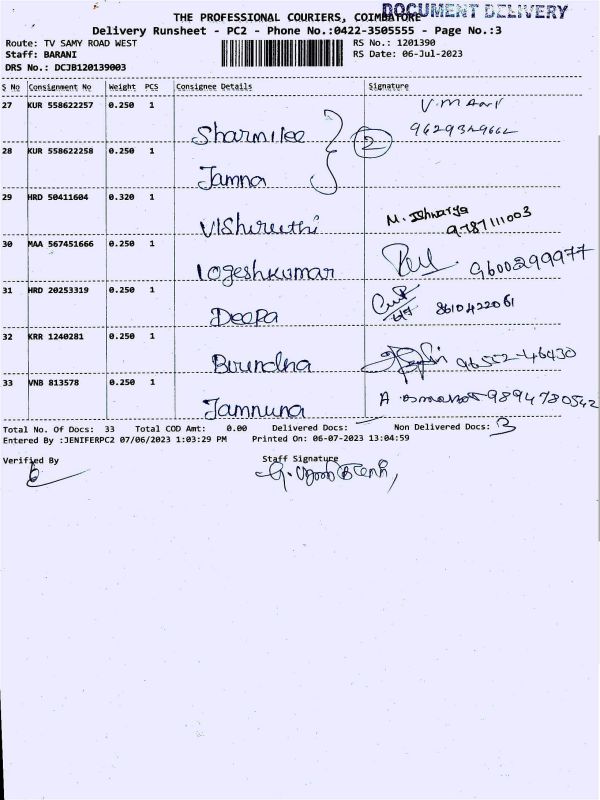 DOCUMENT DELIVERY
THE PROFESSIONAL COURIERS, COIMBATORE
Delivery Runsheet - PC2 - Phone No.:0422-3505555 - Page No.:3
Route: TV SAMY ROAD WEST RS No.: 1201390
Staff: BARANI RS Date: 06-Jul-2023
DRS No.: DCJB120139003
S No Consignment No Weight PCS Consignee Details Signature
27 KUR 558622257 0.250 1 Sharmilee
28 KUR 558622258 0.250 1 Jamna 2
29 HRD 50411604 0.320 1 Vishruthi M. Ishwarya 9787111003
30 MAA 567451666 0.250 1 Logeshkumar 9600299977
31 HRD 20253319 0.250 1 Deepa 8610422061
32 KRR 1240281 0.250 1 Birundha 96552-46430
33 VNB 813578 0.250 1 Jamnuna A 9894730542
Total No. Of Docs: 33 Total COD Amt: 0.00 Delivered Docs: Non Delivered Docs: 3
Entered By :JENIFERPC2 07/06/2023 1:03:29 PM Printed On: 06-07-2023 13:04:59
Verified By Staff Signature